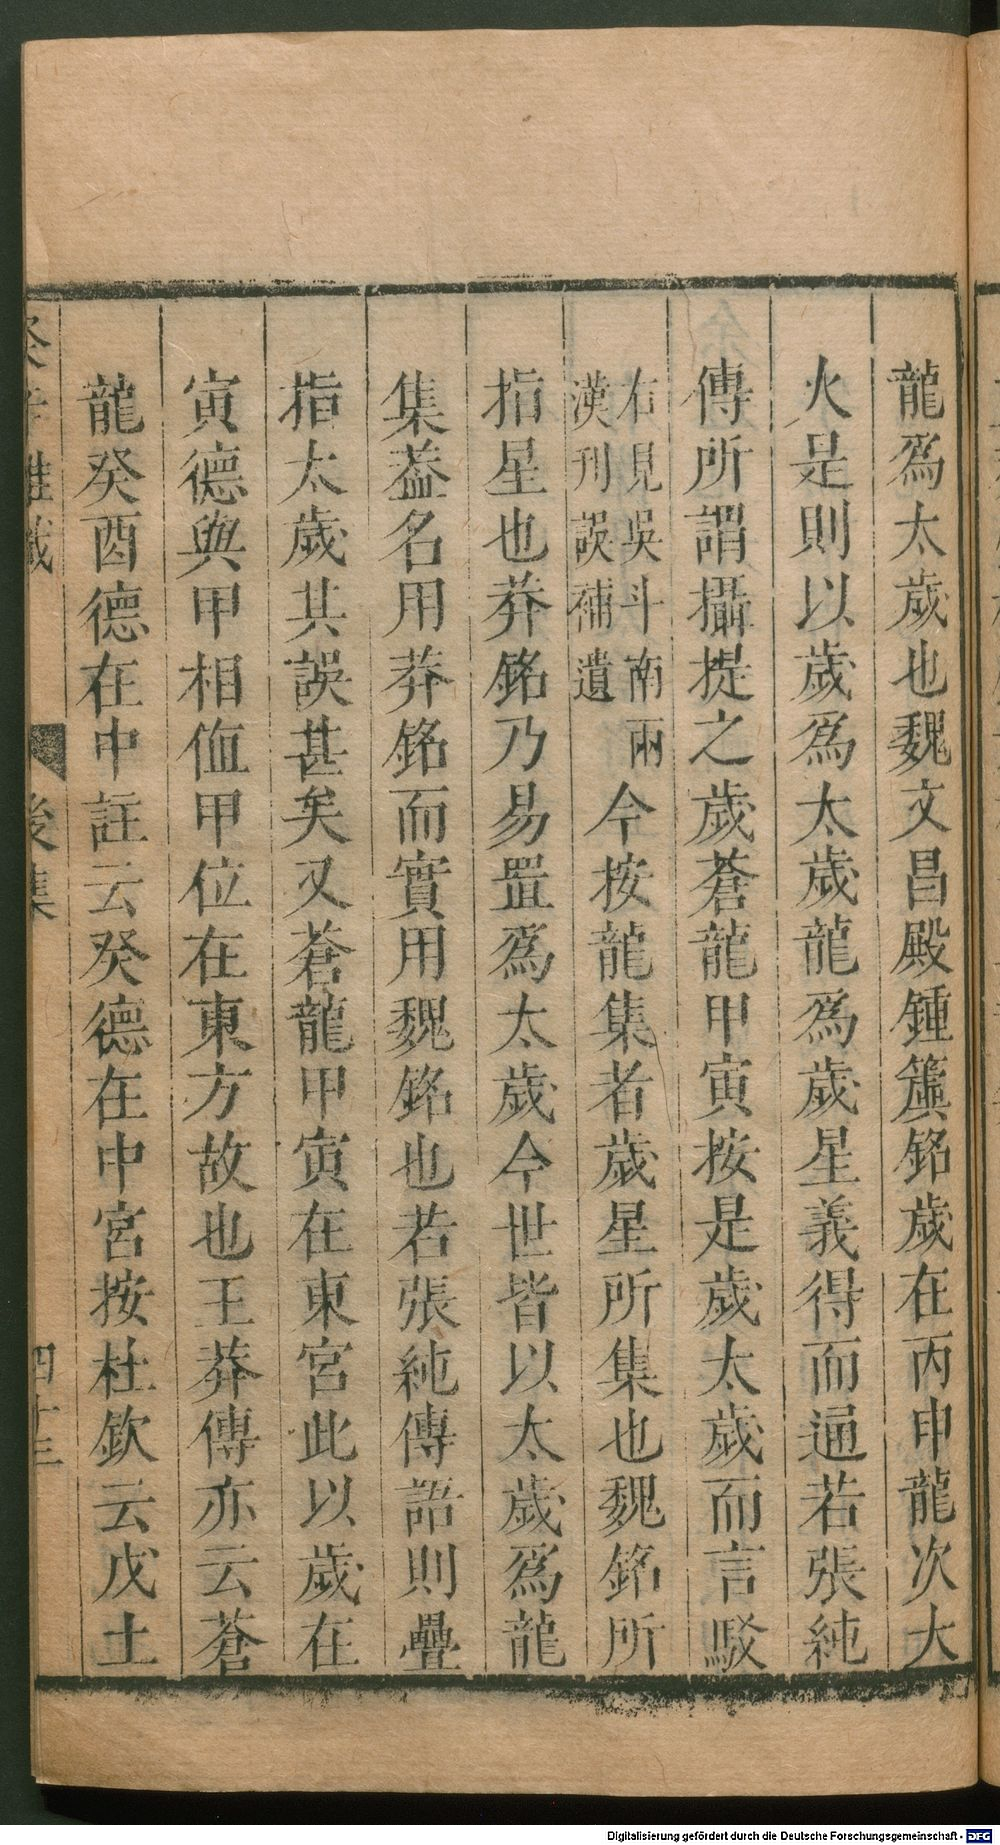 龍爲太歲也魏文昌殿鍾簴銘歲在丙申龍次大
火是則以歲爲太歲龍爲歲星義得而通若張純
傳所謂攝提之歲蒼龍甲寅按是歲太歲而言駁
右見吳斗南兩
漢刊誤補遺
今按龍集者歲星所集也魏銘所
指星也莽銘乃易置爲太歲今世皆以太歲爲龍
集葢名用莽銘而實用魏銘也若張純傳語則疊
指太歲其誤甚矣又蒼龍甲寅在東宮此以歲在
寅德與甲相値甲位在東方故也王莽傳亦云蒼
龍癸酉德在中註云癸德在中宮按杜欽云戊土
癸辛雜識
後集
四十三
Digitalisierung gefördert durch die Deutsche Forschungsgemeinschaft - DFG